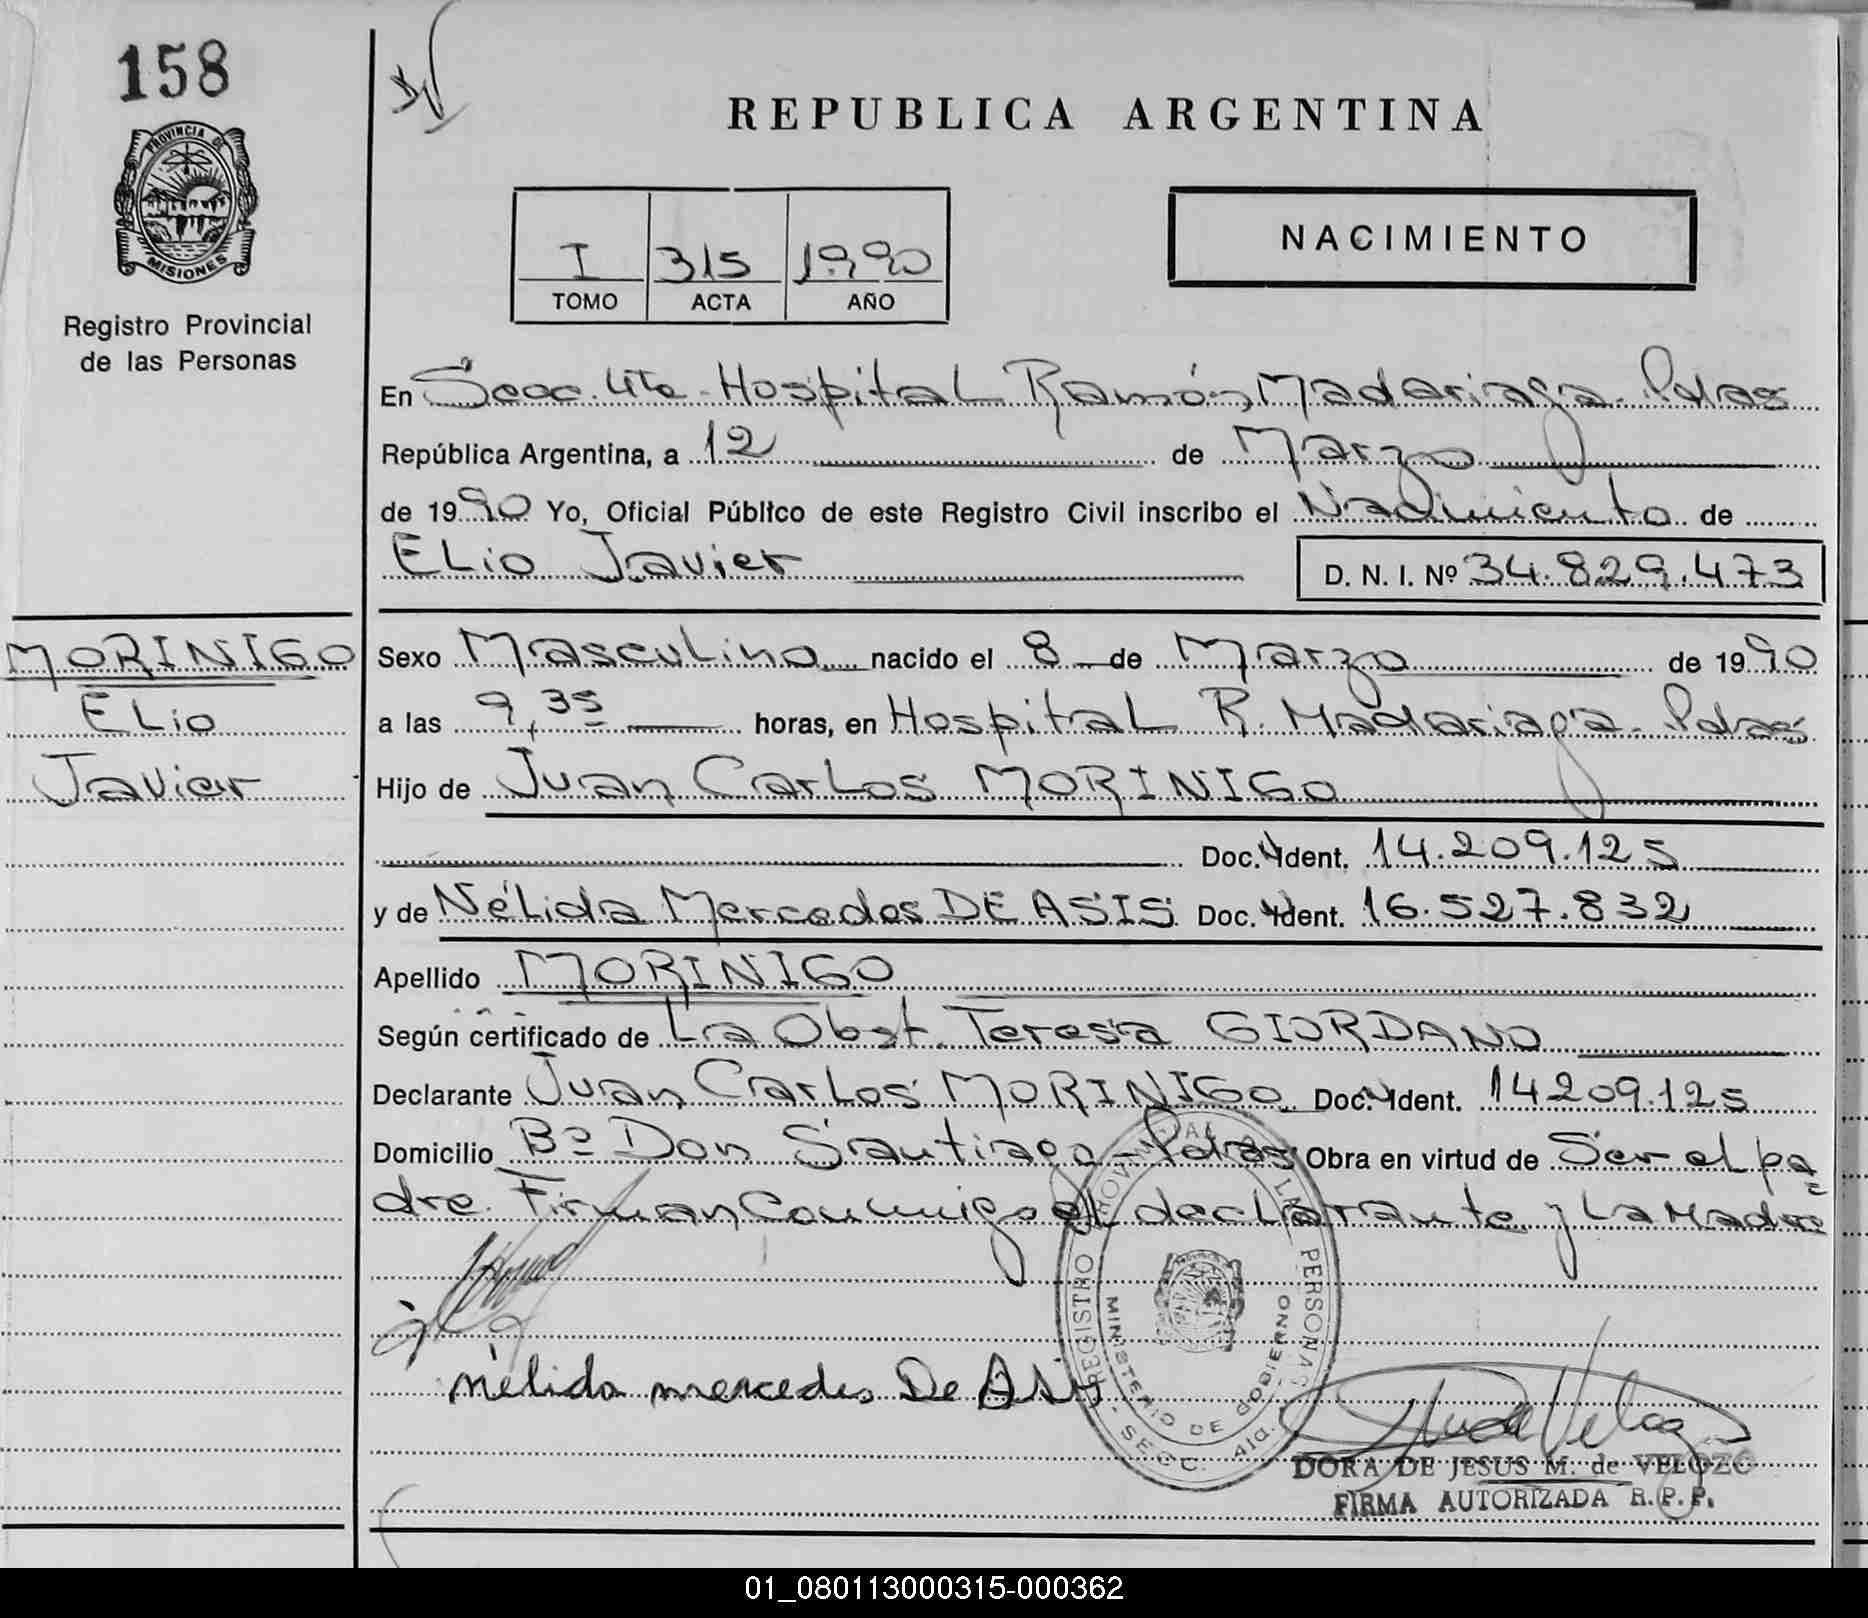 158
PROVINCIA DE
MISIONES
Registro Provincial
de las Personas
REPUBLICA ARGENTINA
I 315 1990
TOMO ACTA AÑO
NACIMIENTO
En Secc. 4ta. Hospital Ramón Madariaga. Pdas
República Argentina, a 12 de Marzo
de 1990 Yo, Oficial Público de este Registro Civil inscribo el Nacimiento de
ELio Javier D. N. I. Nº 34.829.473
MORINIGO
ELio
Javier
Sexo Masculino nacido el 8 de Marzo de 1990
a las 9,35 horas, en Hospital R. Madariaga. Pdas
Hijo de Juan Carlos MORINIGO
Doc. Ident. 14.209.125
y de Nélida Mercedes DE ASIS Doc. Ident. 16.527.832
Apellido MORINIGO
Según certificado de La Obst. Teresa GIORDANO
Declarante Juan Carlos MORINIGO Doc. Ident. 14209.125
Domicilio Bº Don Santiago - Pdas Obra en virtud de Ser el pa=
dre. Firman Conmigo el declarante y La Madre
nélida mercedes De Asis
REGISTRO PROVINCIAL DE LAS PERSONAS
MINISTERIO DE GOBIERNO
- SECC. 4ta. -
DORA DE JESUS M. de VELOZO
FIRMA AUTORIZADA R. P. P.
01_080113000315-000362